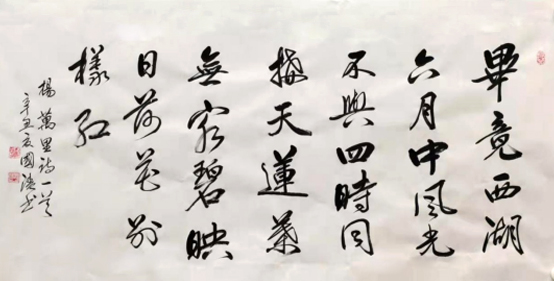 畢竟西湖
六月中風光
不與四時同
接天蓮葉
無窮碧映
日荷花別
樣紅
楊萬里詩一首
辛丑夏國書